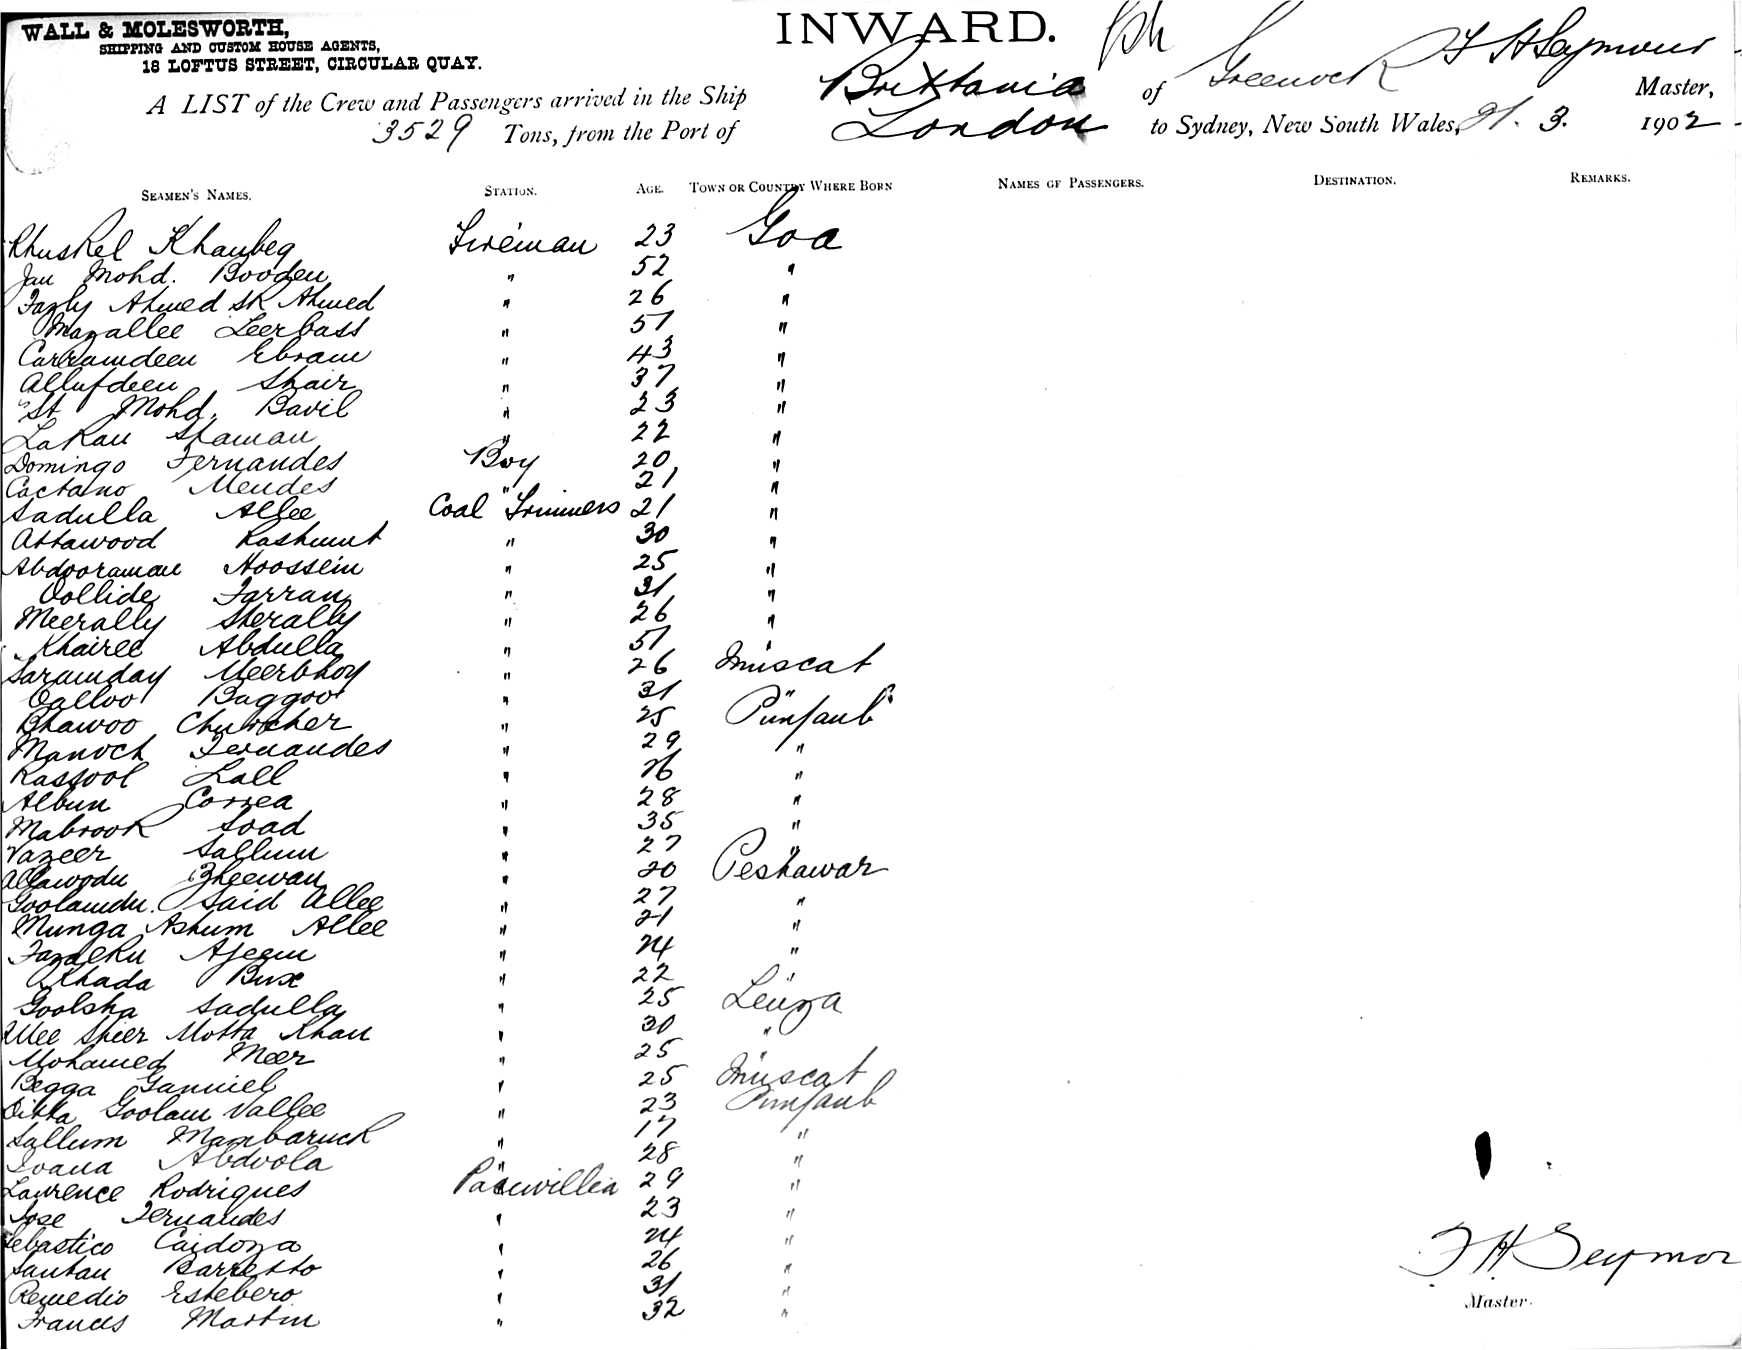 WALL & MOLESWORTH,
SHIPPING AND CUSTOM HOUSE AGENTS,
18 LOFTUS STREET, CIRCULAR QUAY.
INWARD.
A LIST of the Crew and Passengers arrived in the Ship Brittania of Greenock F H Seymour Master,
3529 Tons, from the Port of London to Sydney, New South Wales, 21. 3. 1902
SEAMEN'S NAMES. STATION. AGE. TOWN OR COUNTRY WHERE BORN NAMES OF PASSENGERS. DESTINATION. REMARKS.
Khuskel Khanbeg Fireman 23 Goa
Jan Mohd. Booden " 52 "
Fazly Ahmed SK Ahmed " 26 "
Mazallee Leerbass " 51 "
Carramdeen Ebram " 43 "
Allufdeen Shair " 37 "
St Mohd. Bavil " 23 "
LaKau Shaman " 22 "
Domingo Fernandes Boy 20 "
Caetano Mendes " 21 "
Sadulla Allee Coal Trimmers 21 "
Attawood Rashmut " 30 "
Abdooraman Hoossein " 25 "
Dollide Farran " 31 "
Meerally Sherally " 26 "
Khairee Abdulla " 51 "
Saramday Meerbhoy " 26 Muscat
Calloo Baggoo " 31 "
Bhawoo " 25 Punjaub
Manock Fernandes " 29 "
Rassool Lall " 26 "
Albun Correa " 28 "
Mabrook Soad " 35 "
Vazeer Sallum " 27 "
Allawodu Jheewan " 20 Peshawar
Goolamdu. Said Allee " 27 "
Munga Ashum Allee " 21 "
Ajeem " 24 "
Alhada Bux " 22 "
Goolsha Sadulla " 25
Allee Sheer Motta Khan " 30 "
Mohamed Meer " 25
Begga Gamiel " 25 Muscat
Ditta Goolam Vallee " 23 Punjaub
Sallum Mambaruck " 17 "
Abdoola " 28 "
Laurence Rodrigues 29 "
Jose Fernandes " 23 "
Sebastico Cardoza " 24 "
Santan Barretto " 26 "
Remedio Estebero " 31 "
Frances Martin " 32 "
F H Seymor
Master.